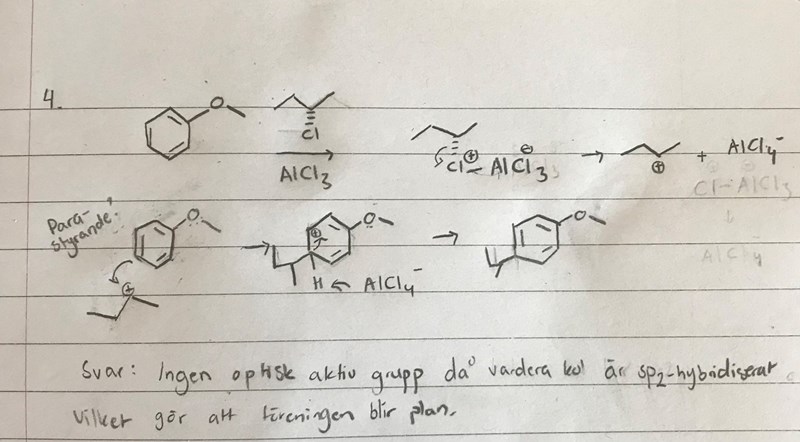 4.
O
Cl
AlCl3
Cl ⊕ - AlCl3 ⊖
→ ⊕ + AlCl4⁻
Cl-AlCl3
AlCl4
Para-
styrande?
O
⊕
⊕ O
H ← AlCl4⁻
O
Svar: Ingen optisk aktiv grupp då vardera kol är sp2-hybridiserat
vilket gör att föreningen blir plan.